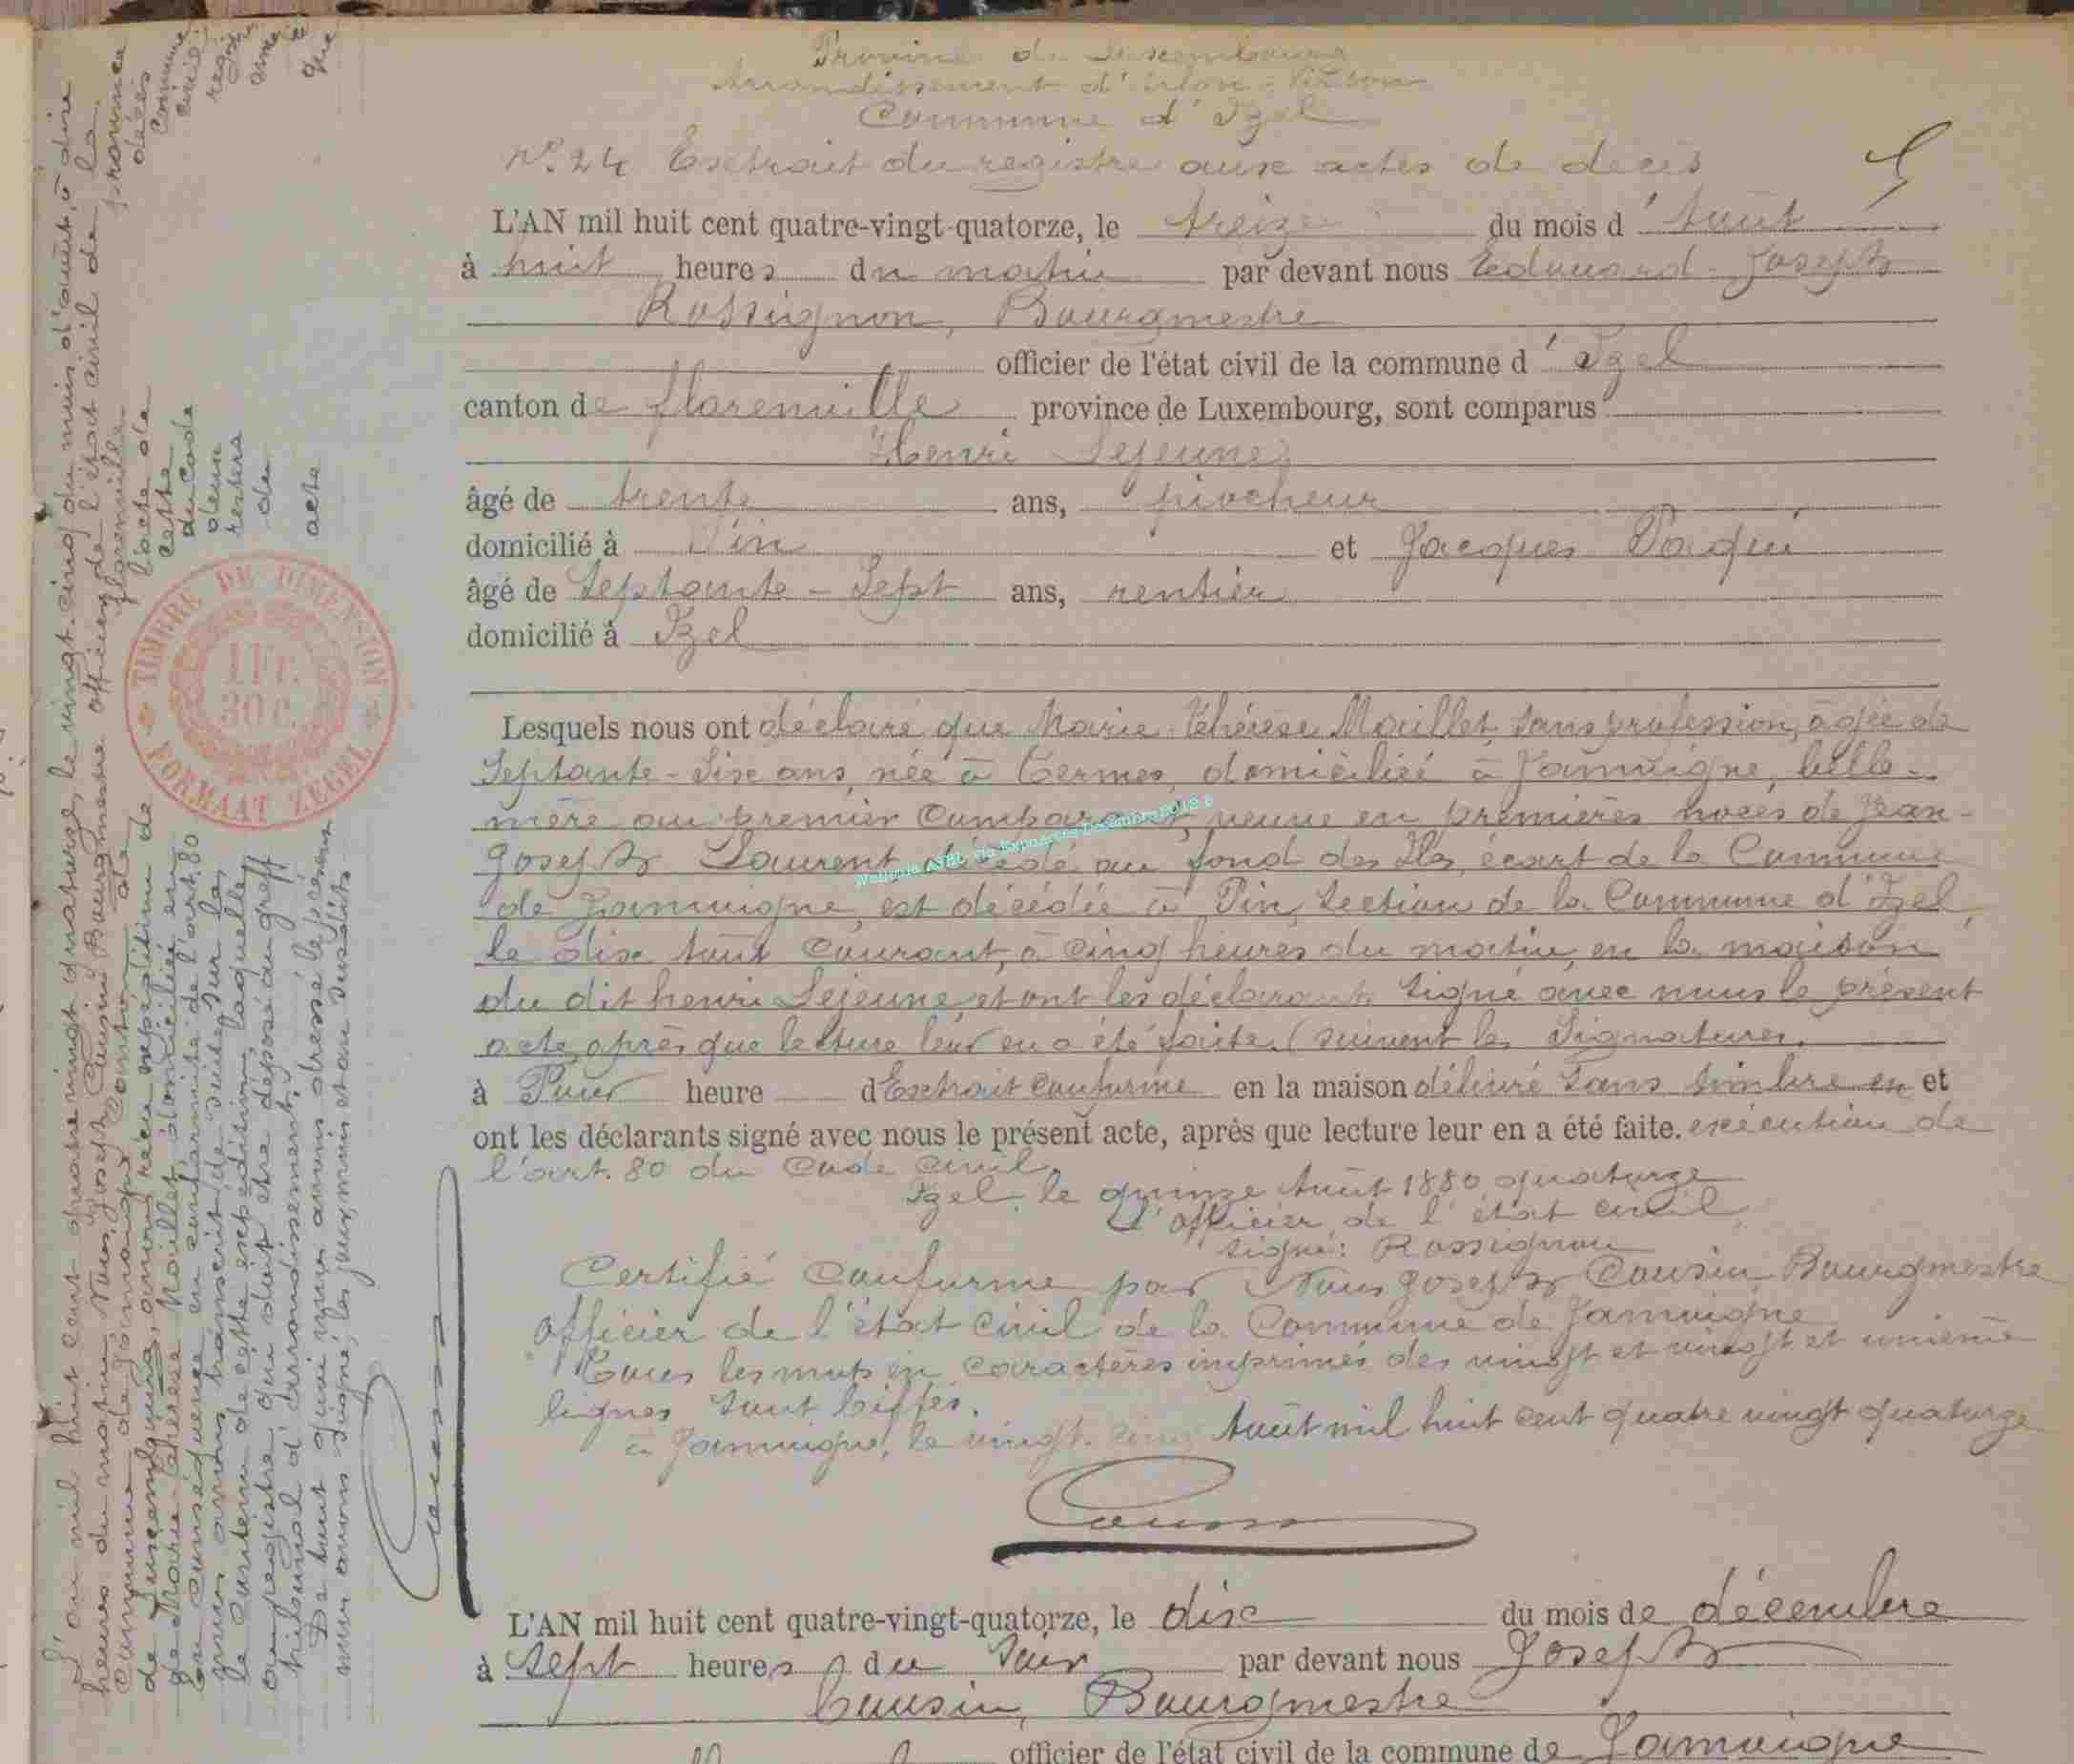 Province de Luxembourg
Arrondissement d'Arlon-Virton
Commune d'Izel
N° 24 Extrait du registre aux actes de décès
5
L'AN mil huit cent quatre-vingt-quatorze, le treize du mois d'Août
à huit heures du matin par devant nous Edouard-Joseph
Rossignon, Bourgmestre
officier de l'état civil de la commune d'Izel
canton de Florenville province de Luxembourg, sont comparus
Henri Lejeune
âgé de trente ans, piocheur
domicilié à Pin et Jacques Paquí
âgé de Septante-Sept ans, rentier
domicilié à Izel
Lesquels nous ont déclaré que Marie-Thérèse Maillet, sans profession, âgée de
Septante-Six ans, née à Termes, domiciliée à Jamoigne, belle-
mère au premier Comparant, veuve en premières noces de Jean-
Joseph Laurent, décédé au fond des Ils, écart de la Commune
de Jamoigne, est décédée à Pin, Section de la Commune d'Izel,
le dix Août Courant, à Cinq heures du matin, en la maison
du dit henri Lejeune, et ont les déclarants signé avec nous le présent
acte, après que lecture leur en a été faite. (Suivent les Signatures.
à Pour heure d Extrait conforme en la maison délivré sans timbre en et
ont les déclarants signé avec nous le présent acte, après que lecture leur en a été faite. exécution de
l'art. 80 du Code Civil
Izel, le quinze Août 1880 quatorze
L'officier de l'état civil,
Signé: Rossignon
Certifié Conforme par Nous Joseph Cousin Bourgmestre
Officier de l'état civil de la Commune de Jamoigne
Tous les mots en caractères imprimés des vingt et vingt et unième
lignes sont biffés.
à Jamoigne, le vingt-cinq Août mil huit cent quatre vingt quatorze
Cousin
L'an mil huit cent quatre vingt quatorze, le vingt-cinq du mois d'août, à dix
heures du matin, Nous, Joseph Cousin Bourgmestre officier de l'état civil de la
Commune de Jamoigne Canton de Florenville province
de Luxembourg, avons reçu expédition de l'acte de décès
de Marie-Thérèse Maillet, domiciliée en cette Commune
En conséquence en conformité de l'art. 80 du Code Civil
nous avons transcrit de suite sur les deux
le Contenu de cette expédition, laquelle restera
au registre qui doit être déposé au greffe du
tribunal d'arrondissement.
De tout quoi nous avons dressé le présent acte
nous avons signé, les jour, mois et an susdits
Cousin
TIMBRE DE DIMENSION
1 Fr.
30 c.
FORMAAT ZEGEL
L'AN mil huit cent quatre-vingt-quatorze, le dix du mois de décembre
à Sept heures du Soir par devant nous Joseph
Cousin, Bourgmestre
officier de l'état civil de la commune de Jamoigne